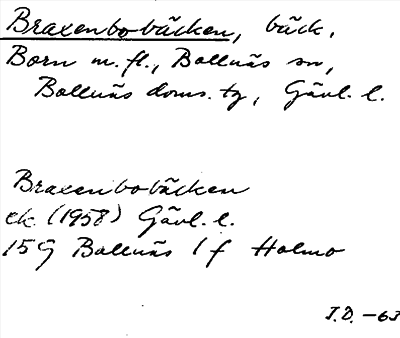 Braxenbobäcken, bäck,
Born m. fl., Bollnäs sn,
Bollnäs doms. tg, Gävl. l.
Braxenbobäcken
ek. (1958) Gävl. l.
15G Bollnäs 1 f Holmo
I.D. -63